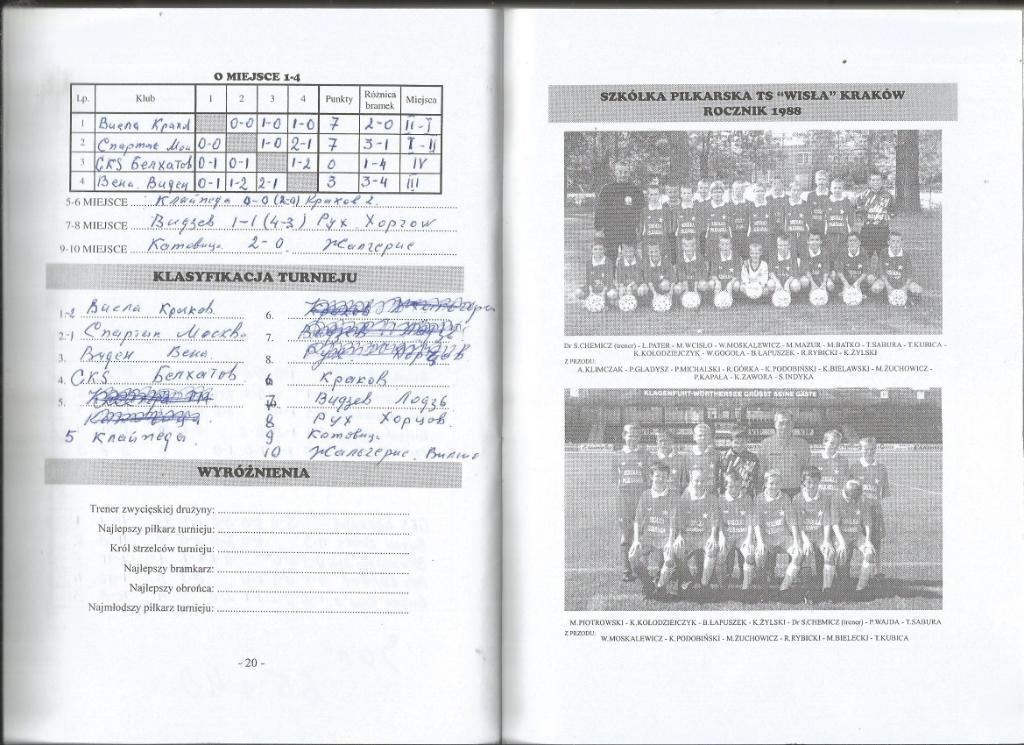 O MIEJSCE 1-4
Lp. Klub 1 2 3 4 Punkty Różnica bramek Miejsca
1 Висла Краков 0-0 1-0 1-0 7 2-0 II-I
2 Спартак Мос 0-0 1-0 2-1 7 3-1 I-II
3 СKS Белхатов 0-1 0-1 1-2 0 1-4 IV
4 Вена. Виден 0-1 1-2 2-1 3 3-4 III
5-6 MIEJSCE Клайпеда 0-0 (2-0) Краков 2.
7-8 MIEJSCE Видзев 1-1 (4-3) Рух Хорзов
9-10 MIEJSCE Катовице 2-0 - Жалгерис
KLASYFIKACJA TURNIEJU
1-2 Висла Краков 6.
2-1 Спартак Москва 7.
3. Виден Вена. 8.
4. СKS Белхатов 6 Краков
5. 7 Видзев Лодзь
8 Рух Хорцов.
5 Клайпеда 9 Катовице
10 Жальгерис. Вильно
WYRÓŻNIENIA
Trener zwycięskiej drużyny:
Najlepszy piłkarz turnieju:
Król strzelców turnieju:
Najlepszy bramkarz:
Najlepszy obrońca:
Najmłodszy piłkarz turnieju:
- 20 -
SZKÓŁKA PIŁKARSKA TS “WISŁA” KRAKÓW
ROCZNIK 1988
Dr S.CHEMICZ (trener) - L.PATER - M.WCISŁO - W.MOSKALEWICZ - M.MAZUR - M.BATKO - T.SABURA - T.KUBICA -
K.KOŁODZIEJCZYK - W.GOGOLA - B.ŁAPUSZEK - R.RYBICKI - K.ŻYLSKI
Z PRZODU:
A.KLIMCZAK - P.GŁADYSZ - P.MICHALSKI - R.GÓRKA - K.PODOBIŃSKI - K.BIELAWSKI - M.ŻUCHOWICZ -
P.KAPAŁA - K.ZAWORA - S.INDYKA
KLAGENFURT-WÖRTHERSEE GRÜSST SEINE GÄSTE
M.PIOTROWSKI - K.KOŁODZIEJCZYK - B.ŁAPUSZEK - K.ŻYLSKI - Dr S.CHEMICZ (trener) - P.WAJDA - T.SABURA
Z PRZODU:
W.MOSKALEWICZ - K.PODOBIŃSKI - M.ŻUCHOWICZ - R.RYBICKI - M.BIELECKI - T.KUBICA